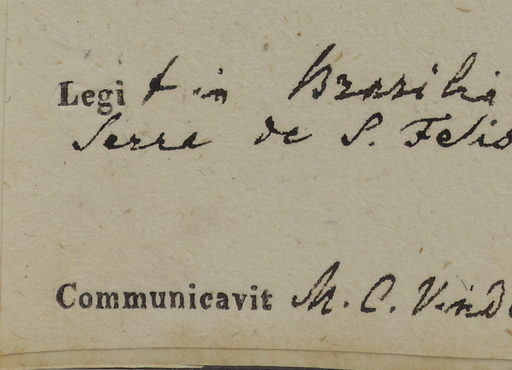 Legit in Brasilia
Serra de S. Felis
Communicavit M. C. Vind